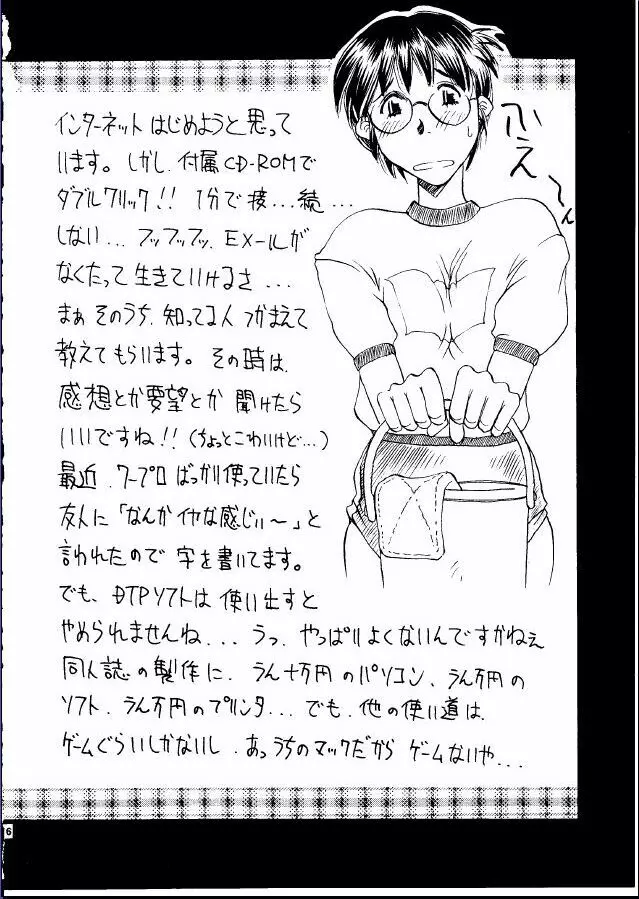 インターネットはじめようと思って
います。しかし、付属CD-ROMで
ダブルクリック!! 1分で接...続...
しない... フッフッフッ、EX-ルが
なくたって生きていけるさ...
まぁそのうち、知ってる人つかまえて
教えてもらいます。その時は、
感想とか要望とか聞けたら
いいですね!!(ちょっとこわいけど...)
最近、ワープロばっかり使っていたら
友人に「なんかイヤな感じぃ〜」と
言われたので字を書いてます。
でも、DTPソフトは使い出すと
やめられませんね... うっ、やっぱりよくないんですかねぇ
同人誌の製作に、うん十万円のパソコン、うん万円の
ソフト、うん万円のプリンタ... でも、他の使い道は
ゲームぐらいしかないし、あっうちのマックだからゲームないや...
ふえ〜ん
6